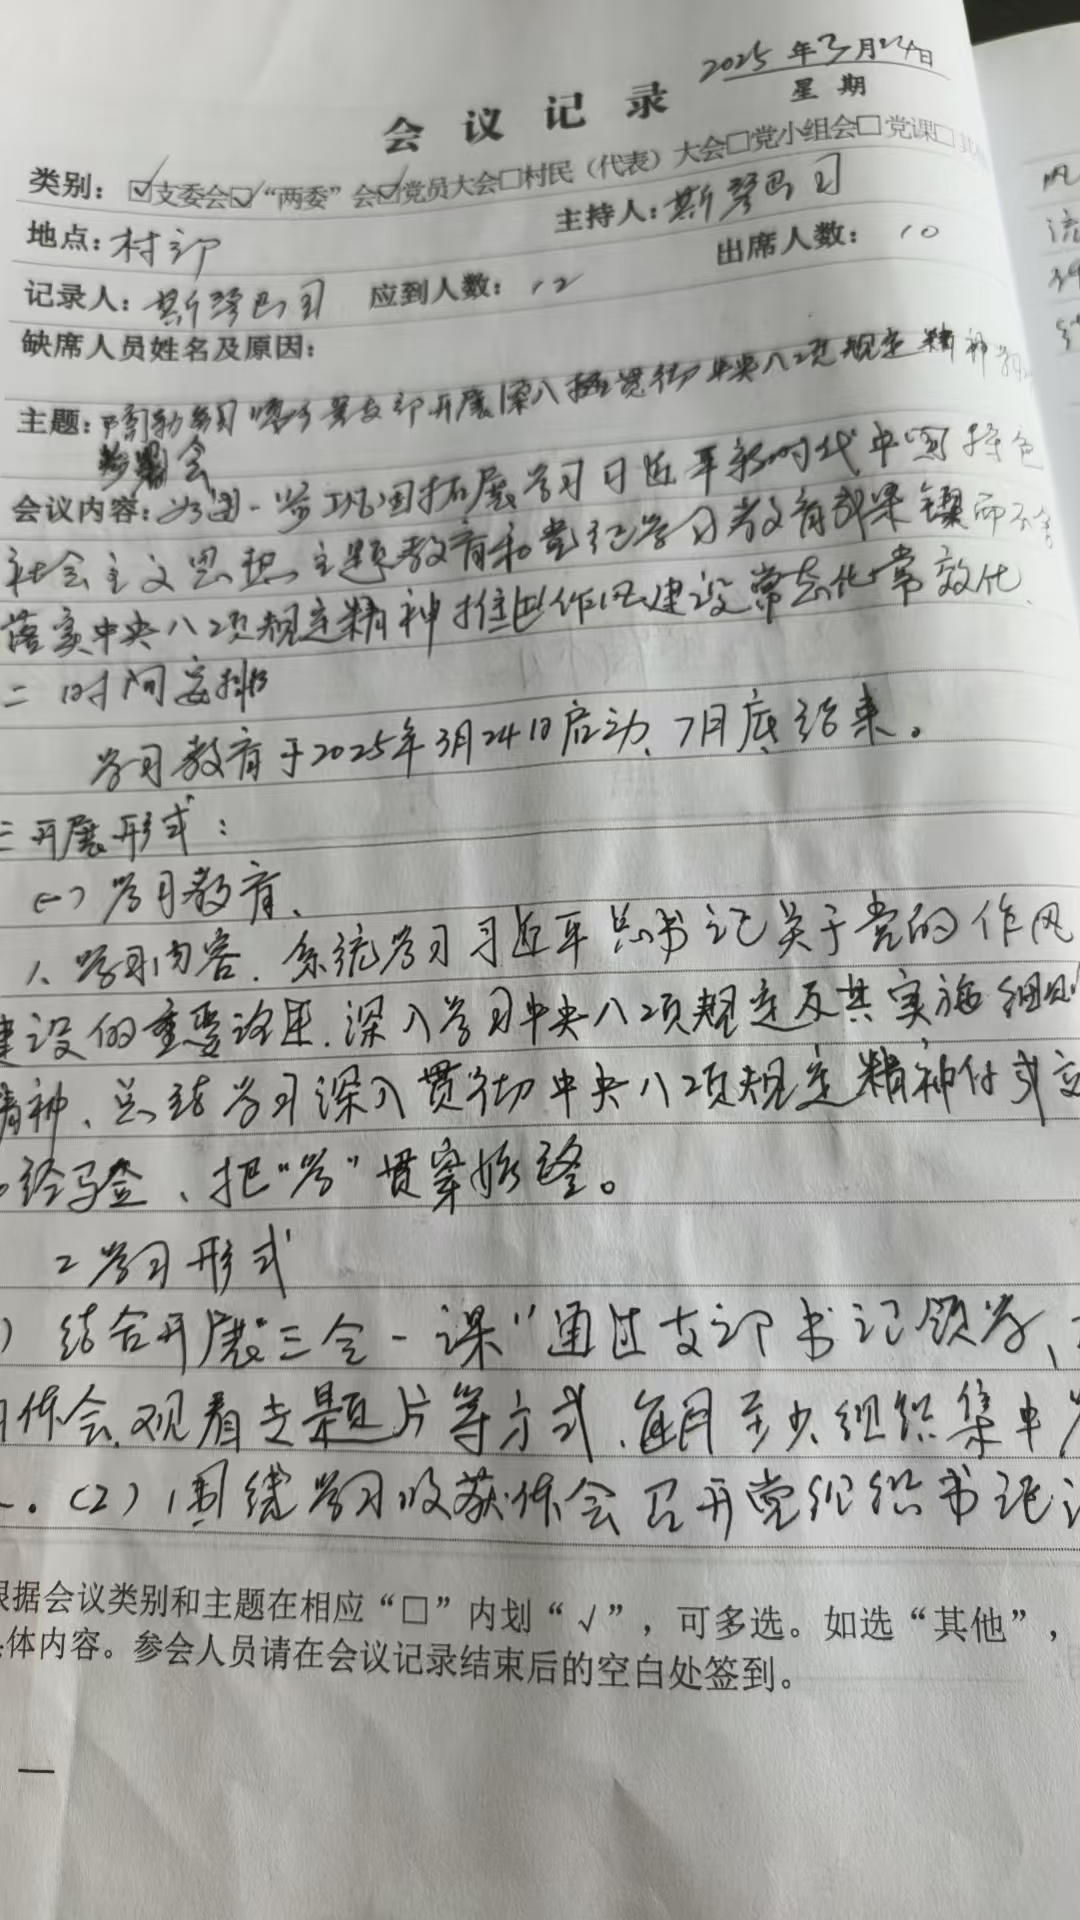 2025年3月24日
会议记录 星期
类别：☑支委会☑“两委”会☑党员大会□村民（代表）大会□党小组会□党课□其
地点：村部 主持人：斯琴巴图
记录人：斯琴巴图 应到人数：12 出席人数：10
缺席人员姓名及原因：
主题：支部开展深入贯彻中央八项规定精神学习
会
会议内容：为进一步巩固拓展学习习近平新时代中国特色
社会主义思想主题教育和党纪学习教育成果锲而不舍
落实中央八项规定精神推进作风建设常态化常效化
二 时间安排
学习教育于2025年3月24日启动、7月底结束。
三 开展形式：
（一）学习教育、
1、学习内容．系统学习习近平总书记关于党的作风
建设的重要论述．深入学习中央八项规定及其实施细则
精神、总结学习深入贯彻中央八项规定精神
经验、把“学”贯穿始终。
2 学习形式
）结合开展“三会一课”通过支部书记领学、
体会、观看专题片等方式、每月至少组织集中
。（2）围绕学习收获体会召开党组织书记
根据会议类别和主题在相应“□”内划“√”，可多选。如选“其他”，
体内容。参会人员请在会议记录结束后的空白处签到。